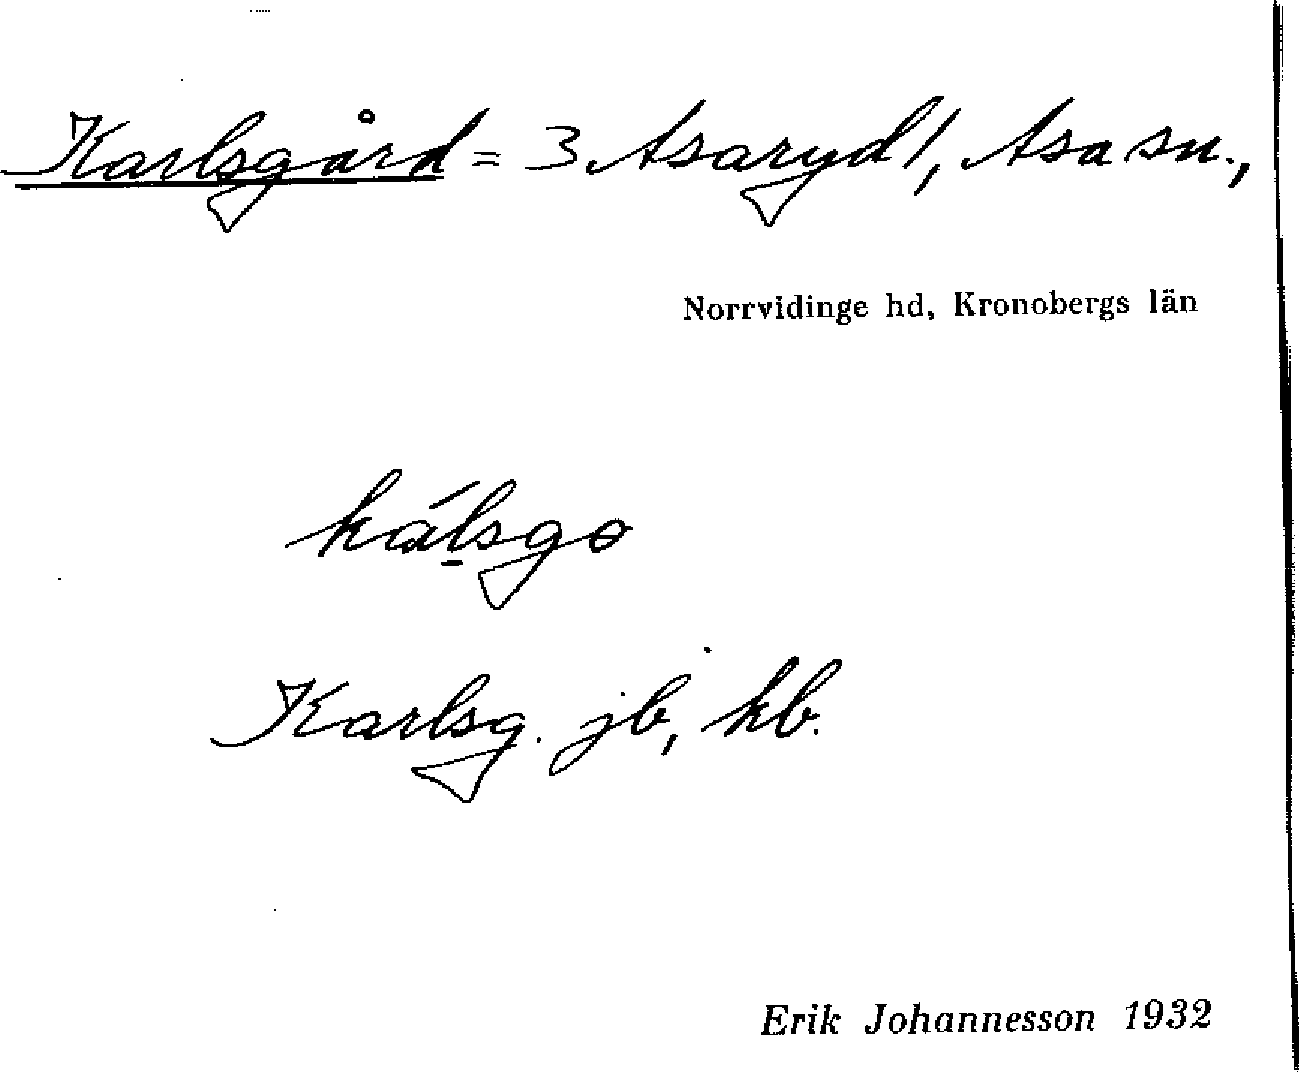 Karlsgård = 3 Asaryd 1, Asa sn.,
Norrvidinge hd, Kronobergs län
kálsgo
Karlsg. jb, kb.
Erik Johannesson 1932